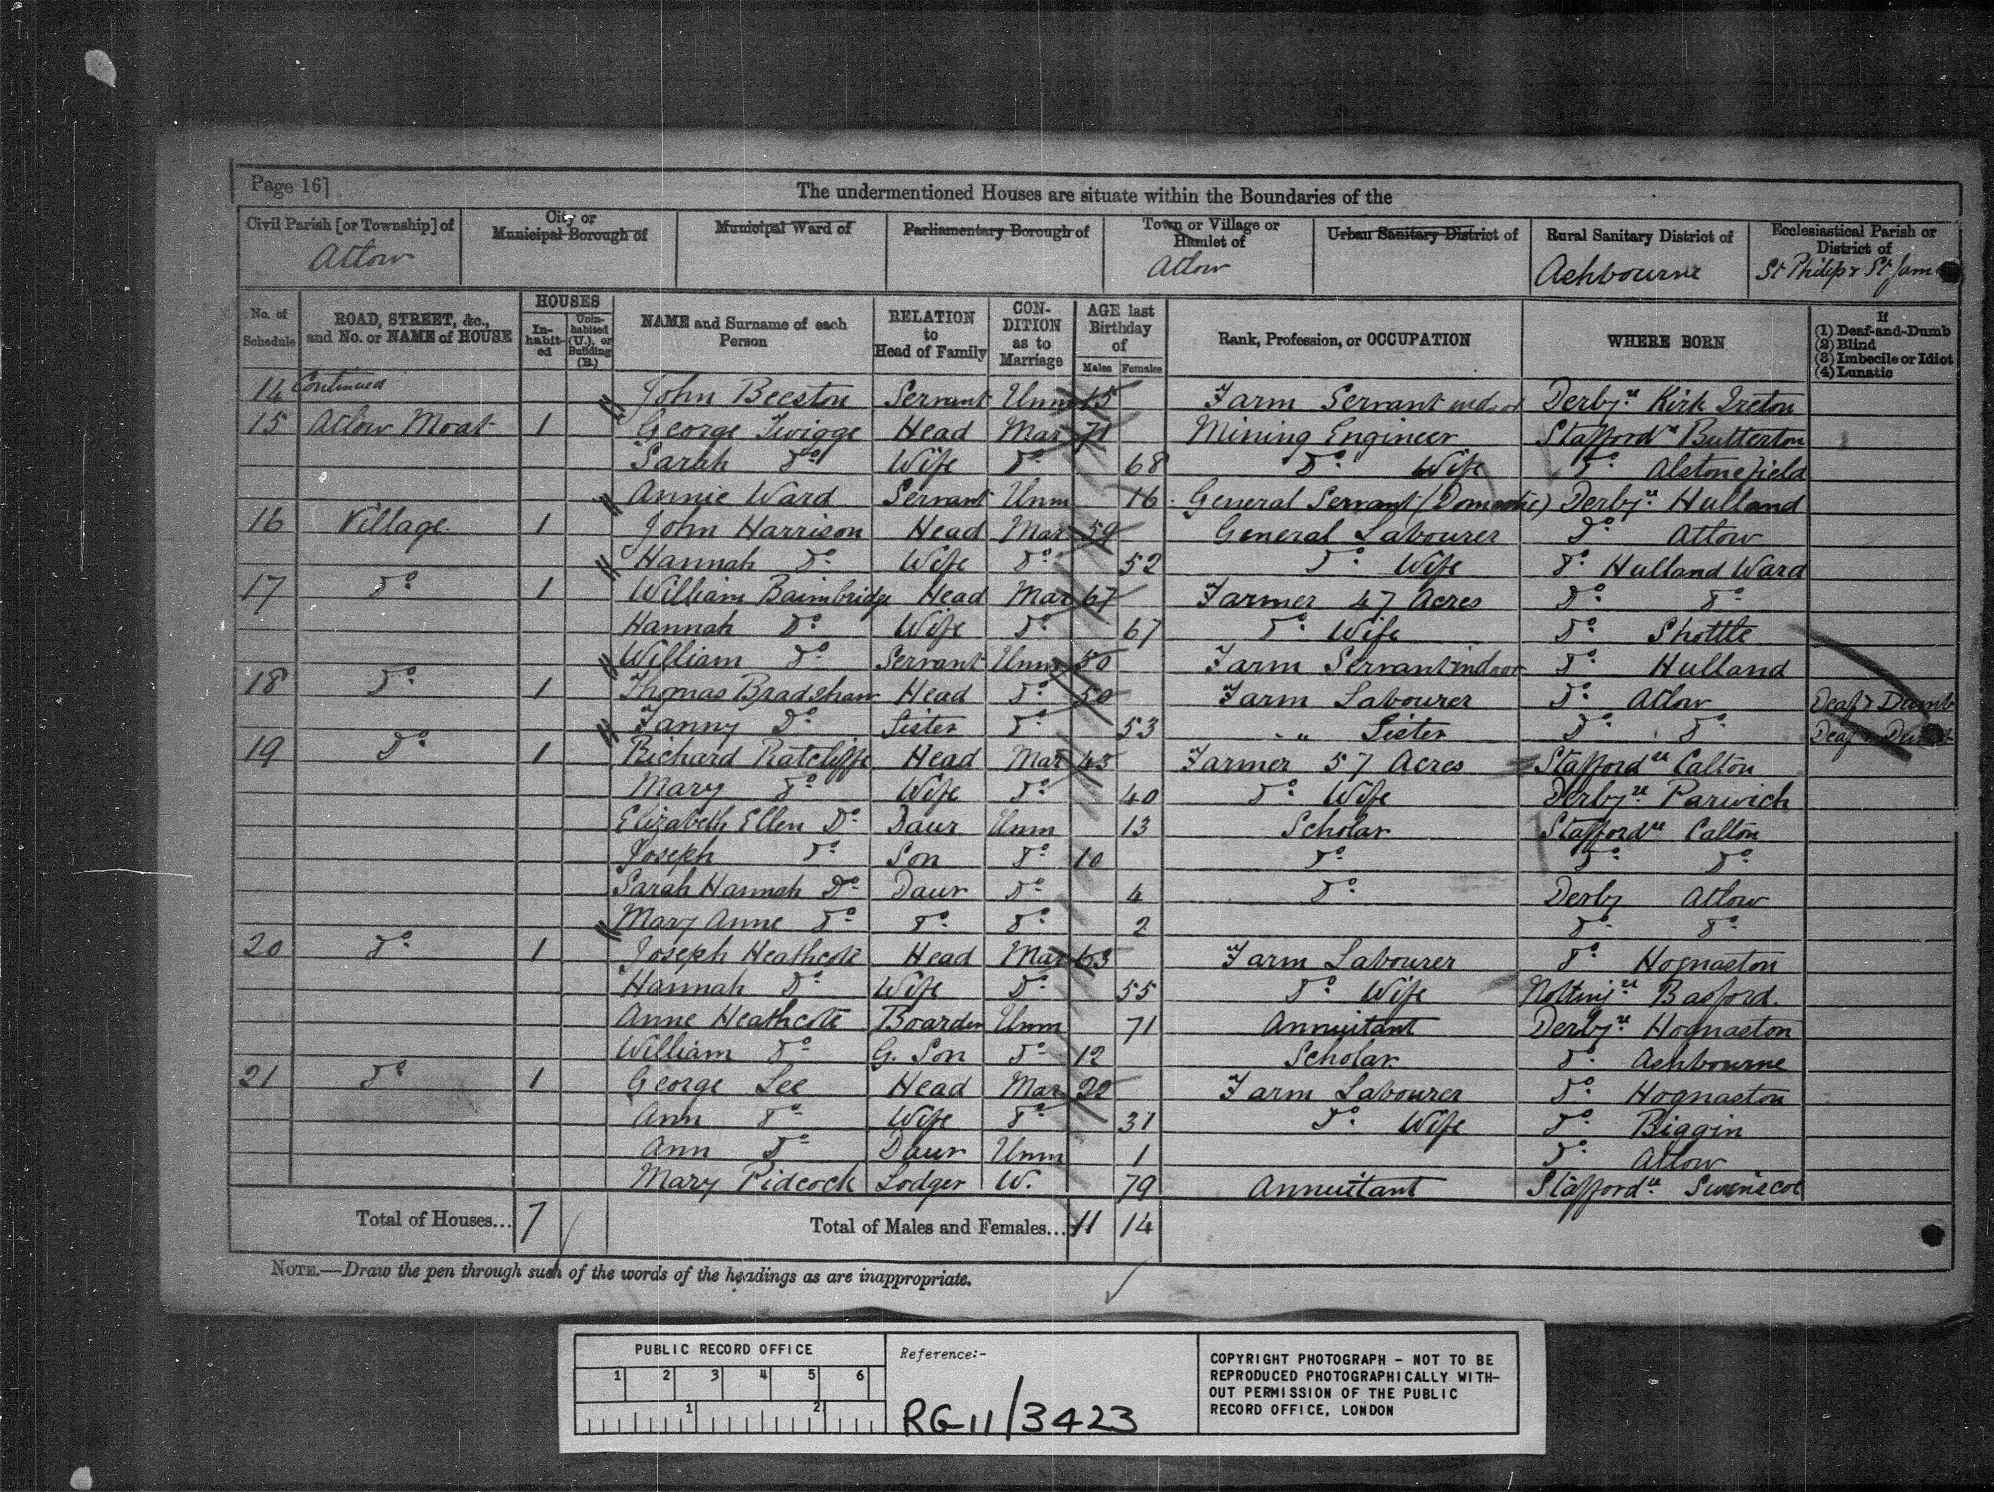 Page 16]
The undermentioned Houses are situate within the Boundaries of the
Civil Parish [or Township] of
Atlow
City or Municipal Borough of
Municipal Ward of
Parliamentary Borough of
Town or Village or Hamlet of
Atlow
Urban Sanitary District of
Rural Sanitary District of
Ashbourne
Ecclesiastical Parish or District of
St Philip & St Jam
No. of Schedule
ROAD, STREET, &c., and No. or NAME of HOUSE
HOUSES
In-habit-ed
Unin-habited (U.), or Building (B.)
NAME and Surname of each Person
RELATION to Head of Family
CON-DITION as to Marriage
AGE last Birthday of
Males Females
Rank, Profession, or OCCUPATION
WHERE BORN
If
(1) Deaf-and-Dumb
(2) Blind
(3) Imbecile or Idiot
(4) Lunatic
14 Continued John Beeston Servant Unm 15 Farm Servant indoor Derby. Kirk Ireton
15 Atlow Moat 1 George Twigge Head Mar 71 Mining Engineer Stafford Butterton
Sarah Do Wife Do 68 Do Wife Do Alstonefield
Annie Ward Servant Unm 16 General Servant (Domestic) Derby. Hulland
16 Village 1 John Harrison Head Mar 59 General Labourer Do Atlow
Hannah Do Wife Do 52 Do Wife Do Hulland Ward
17 Do 1 William Baimbridge Head Mar 67 Farmer 47 Acres Do Do
Hannah Do Wife Do 67 Do Wife Do Shottle
William Do Servant Unm 50 Farm Servant indoor Do Hulland
18 Do 1 Thomas Bradshaw Head Do 50 Farm Labourer Do Atlow Deaf & Dumb
Fanny Do Sister Do 53 " Sister Do Do Deaf
19 Do 1 Richard Ratcliffe Head Mar 45 Farmer 57 Acres Stafford Calton
Mary Do Wife Do 40 Do Wife Derby. Parwich
Elizabeth Ellen Do Daur Unm 13 Scholar Stafford Calton
Joseph Do Son Do 10 Do Do Do
Sarah Hannah Do Daur Do 4 Do Derby Atlow
Mary Anne Do Do Do 2 Do Do
20 Do 1 Joseph Heathcote Head Mar 63 Farm Labourer Do Hognaston
Hannah Do Wife Do 55 Do Wife Notting. Basford.
Anne Heathcote Boarder Unm 71 Annuitant Derby. Hognaston
William Do G. Son Do 12 Scholar Do Ashbourne
21 Do 1 George Lee Head Mar 32 Farm Labourer Do Hognaston
Ann Do Wife Do 31 Do Wife Do Biggin
Ann Do Daur Unm 1 Do Atlow
Mary Pidcock Lodger W. 79 Annuitant Stafford Swinscoe
Total of Houses... 7 Total of Males and Females... 11 14
NOTE.—Draw the pen through such of the words of the headings as are inappropriate.
PUBLIC RECORD OFFICE
1 2 3 4 5 6
1 2
Reference:-
RG 11/3423
COPYRIGHT PHOTOGRAPH - NOT TO BE
REPRODUCED PHOTOGRAPHICALLY WITH-
OUT PERMISSION OF THE PUBLIC
RECORD OFFICE, LONDON